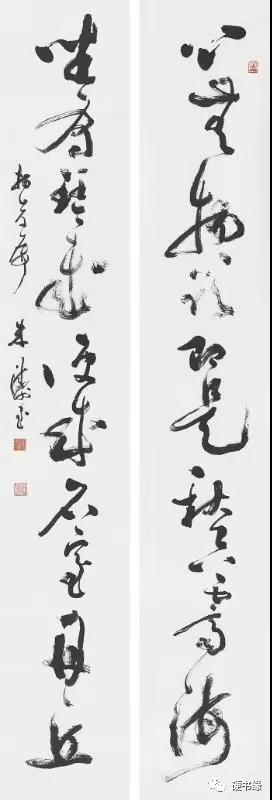 心無物欲即是秋空霽海
坐有琴書便成石室丹丘
硬书缘